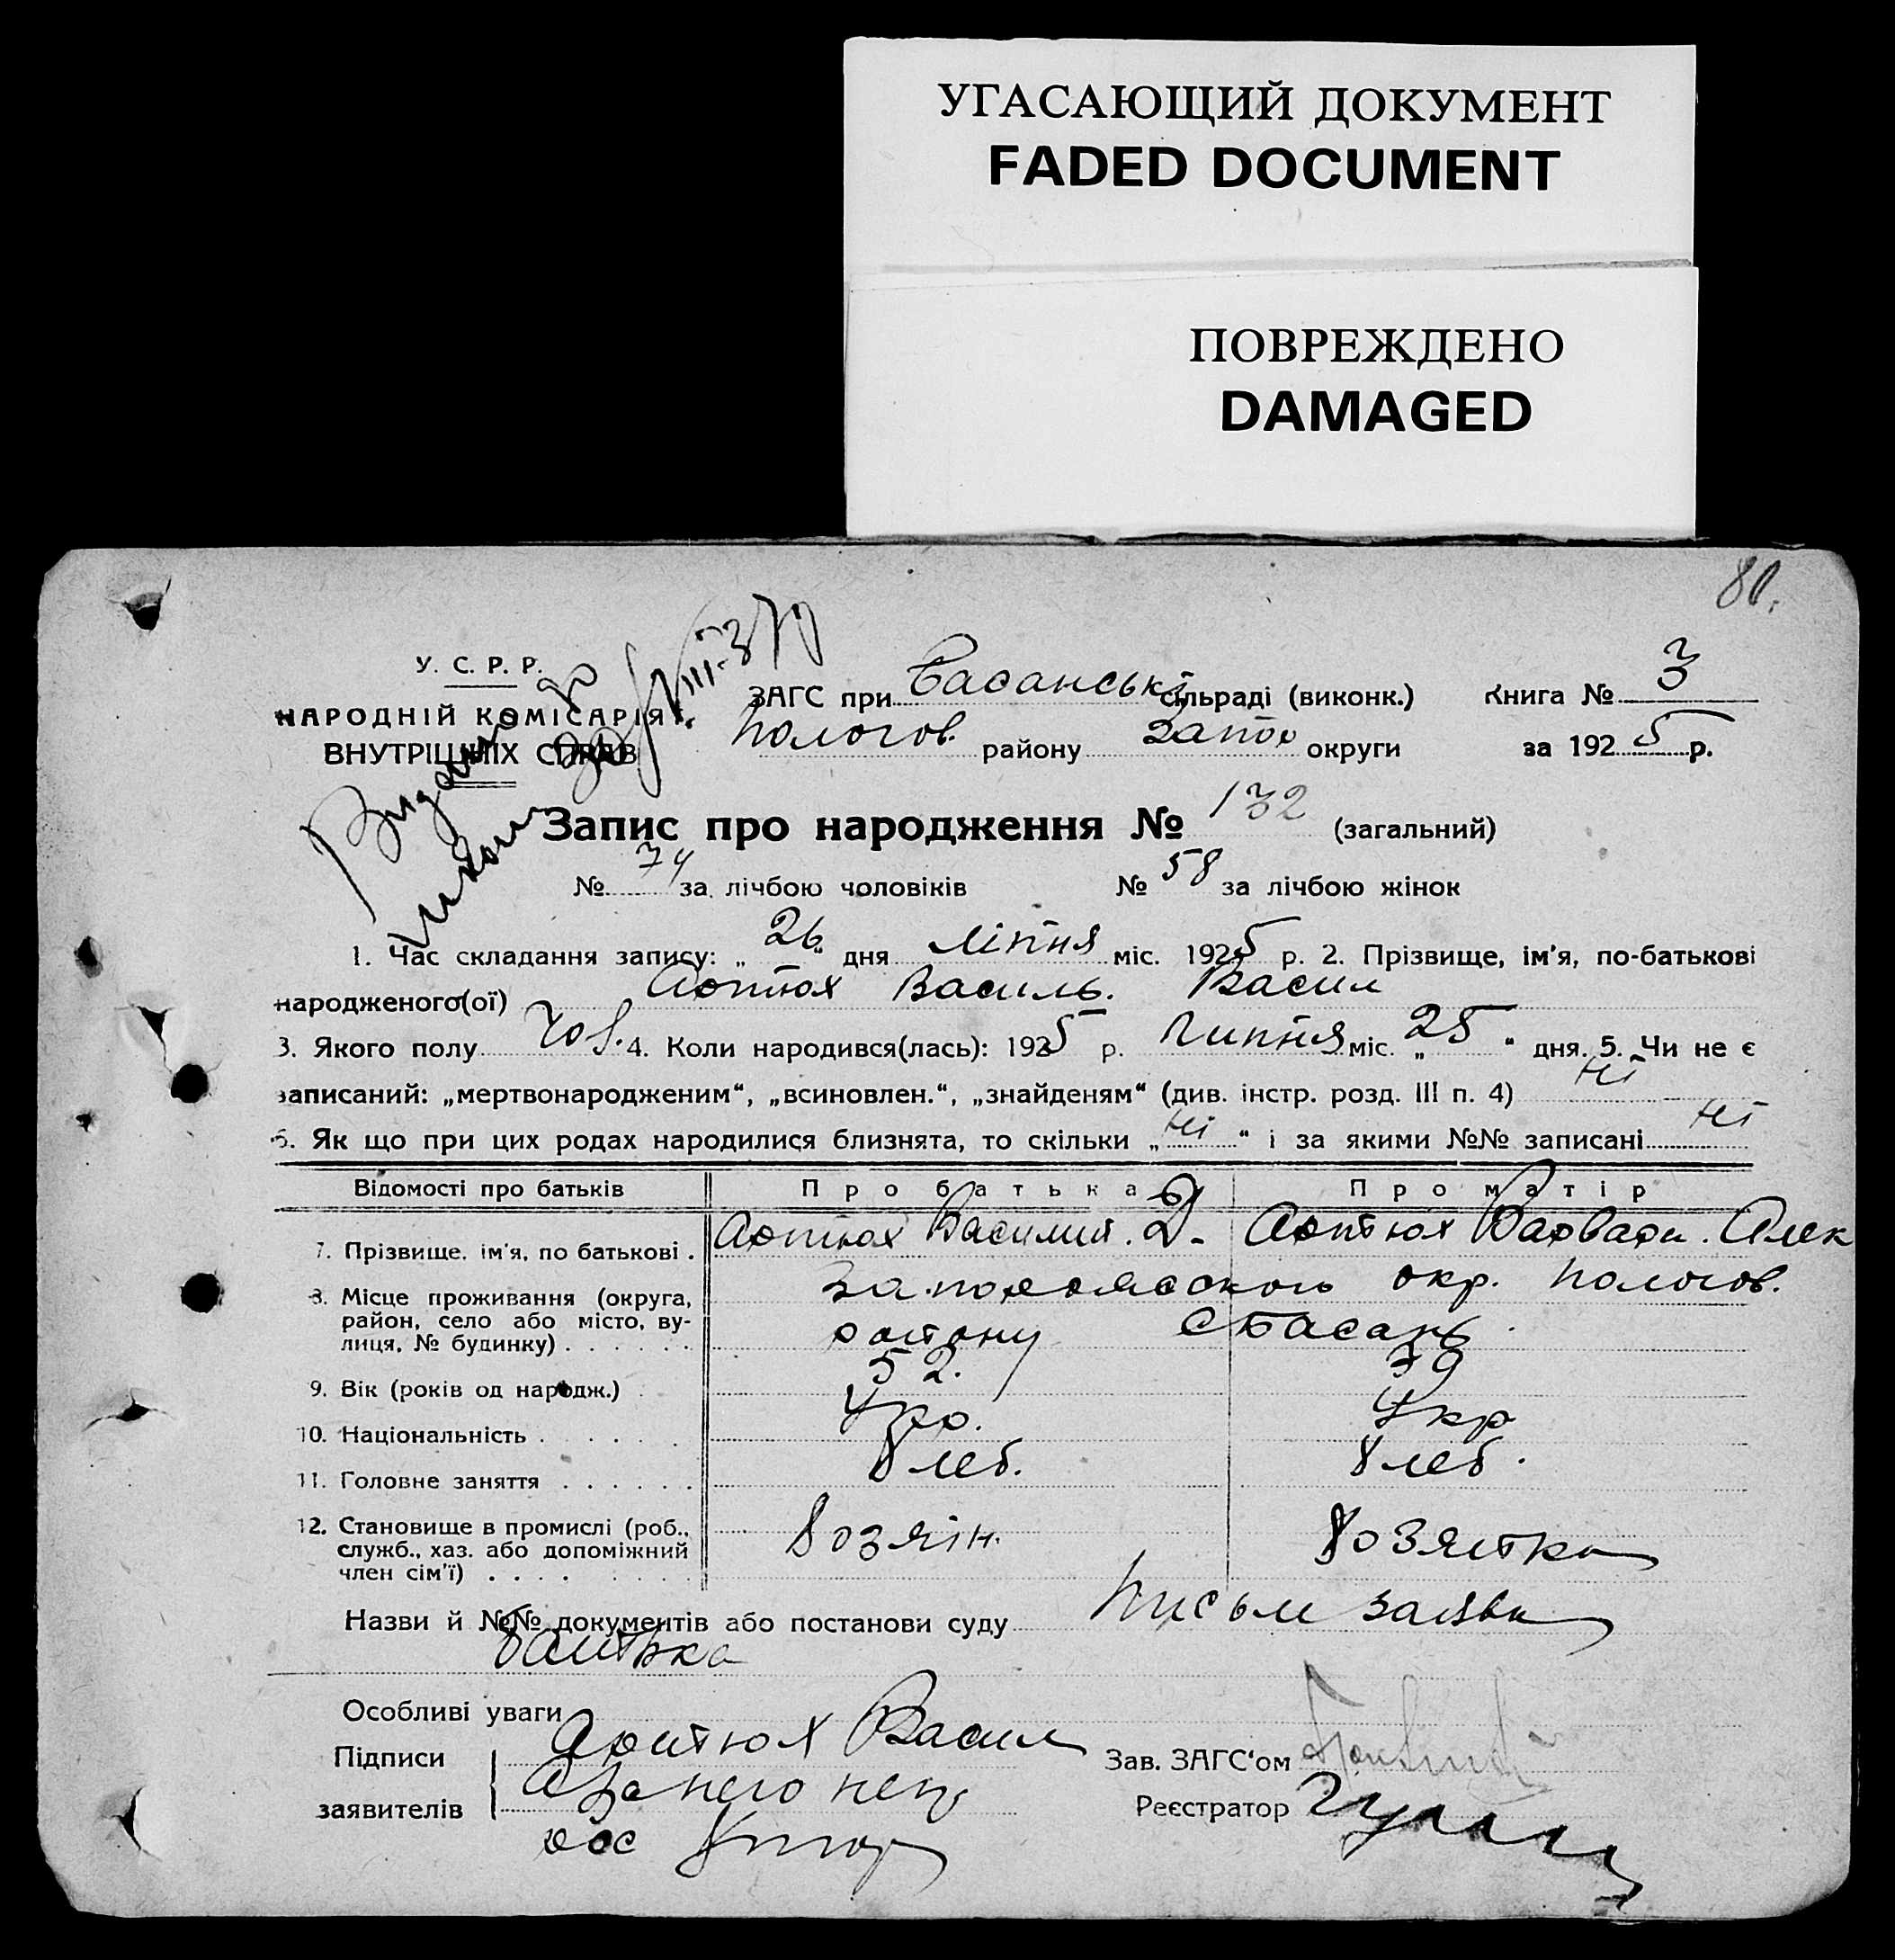 УГАСАЮЩИЙ ДОКУМЕНТ
FADED DOCUMENT
ПОВРЕЖДЕНО
DAMAGED
80.
У. С. Р. Р.
НАРОДНІЙ КОМІСАРІЯТ
ВНУТРІШНІХ СПРАВ
ЗАГС при Басанські сільраді (виконк.) Книга № 3
Пологов. району Запор округи за 1925 р.
Запис про народження № 132 (загальний)
№ 74 за лічбою чоловіків № 58 за лічбою жінок
1. Час складання запису: „26“ дня Ліпня міс. 1925 р. 2. Прізвище, ім'я, по-батькові
народженого(ої) Артюх Василь. Васил
3. Якого полу чов. 4. Коли народився(лась): 1925 р. Липня міс. „25“ дня. 5. Чи не є
записаний: „мертвонародженим“, „всиновлен.“, „знайденям“ (див. інстр. розд. III п. 4) Ні
6. Як що при цих родах народилися близнята, то скільки „Ні“ і за якими №№ записані Ні
Відомості про батьків Про батька Про матір
7. Прізвище, ім'я, по батькові . Артюх Василий. Д. Артюх Варвара. Алек
8. Місце проживання (округа, Запорожского окр. Пологов.
район, село або місто, ву- району с Басань.
лиця, № будинку) . . . . . .
9. Вік (років од народж.) . 52. 39
10. Національність . . . . . . Укр. Укр
11. Головне заняття . . . . . . Хлеб. Хлеб.
12. Становище в промислі (роб., Хозяін. Хозяйка
служб., хаз. або допоміжний
член сім'ї) . . . . . . . .
Назви й №№ документів або постанови суду Письм заява
батька
Особливі уваги
Підписи Артюх Васил Зав. ЗАГС'ом
заявителів а за него Реєстратор